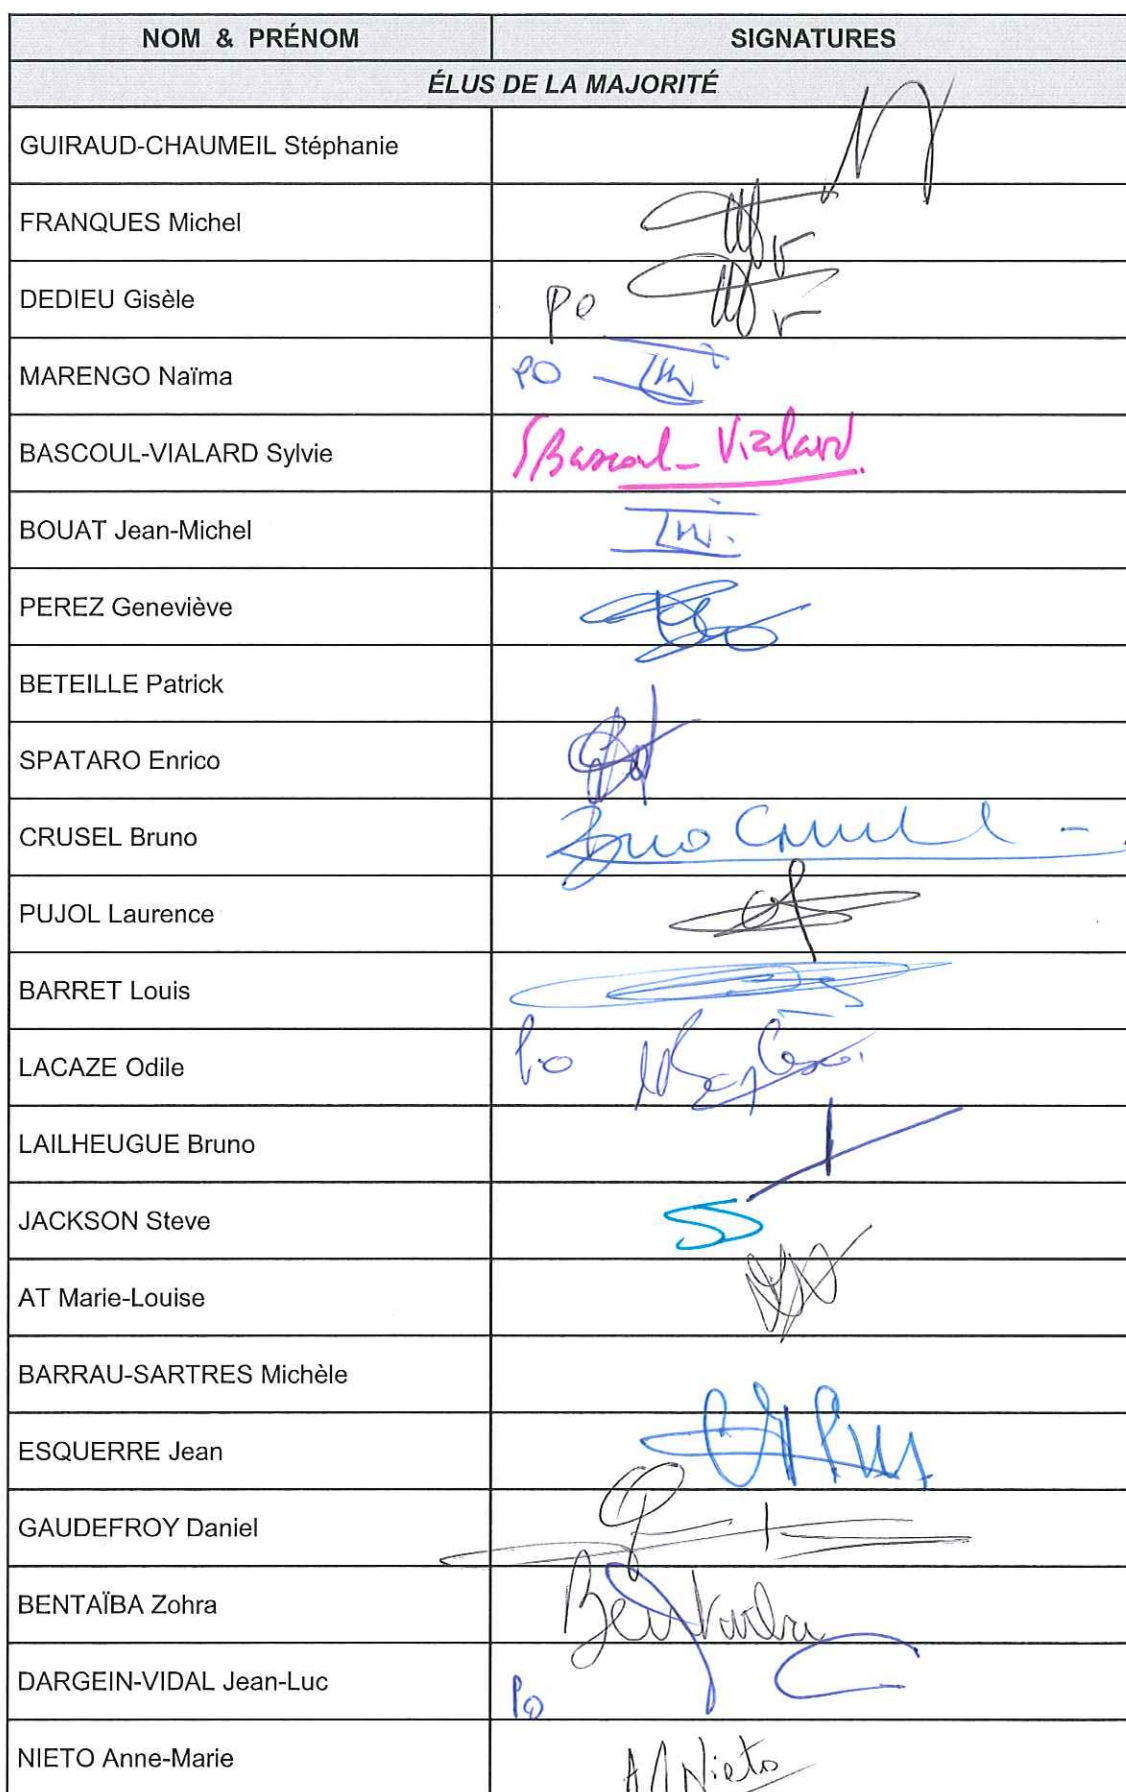 NOM & PRÉNOM SIGNATURES
ÉLUS DE LA MAJORITÉ
GUIRAUD-CHAUMEIL Stéphanie
FRANQUES Michel
DEDIEU Gisèle PO
MARENGO Naïma PO
BASCOUL-VIALARD Sylvie SBascoul-Vialard
BOUAT Jean-Michel
PEREZ Geneviève
BETEILLE Patrick
SPATARO Enrico
CRUSEL Bruno Bruno Crusel
PUJOL Laurence
BARRET Louis
LACAZE Odile Po
LAILHEUGUE Bruno
JACKSON Steve
AT Marie-Louise
BARRAU-SARTRES Michèle
ESQUERRE Jean
GAUDEFROY Daniel
BENTAÏBA Zohra
DARGEIN-VIDAL Jean-Luc Po
NIETO Anne-Marie AM Nieto